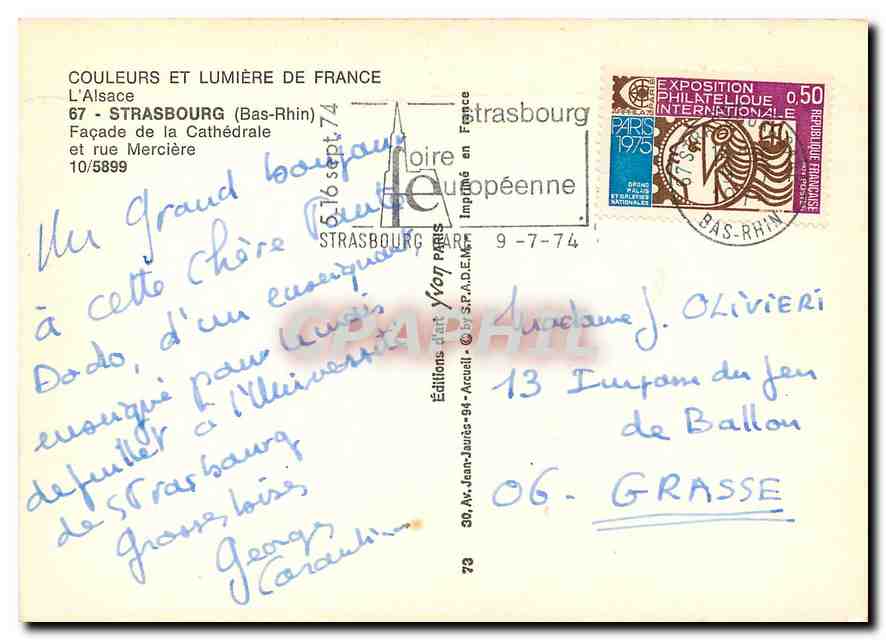 COULEURS ET LUMIÈRE DE FRANCE
L'Alsace
67 - STRASBOURG (Bas-Rhin)
Façade de la Cathédrale
et rue Mercière
10/5899
Un grand bonjour
à cette Chère Tante
Dodo, d'un enseignant
enseigné pour 1 mois
de juillet à l'Université
de Strasbourg
Grosses bises
Georges
5.16 sept.74
strasbourg
foire
européenne
STRASBOURG GARE 9-7-74
Éditions d'art Yvon PARIS
30, Av. Jean-Jaurès-94-Arcueil - © by S.P.A.D.E.M. Imprimé en France
73
CPAPHIL
ARPHILA 75 PARIS
EXPOSITION
PHILATELIQUE
INTERNATIONALE
0,50
PARIS
1975
GRAND
PALAIS
ET GALERIES
NATIONALES
REPUBLIQUE FRANÇAISE
POSTES
67 STRASBOURG
BAS-RHIN
Madame J. OLIVIERI
13 Impasse du Jeu
de Ballon
06 - GRASSE